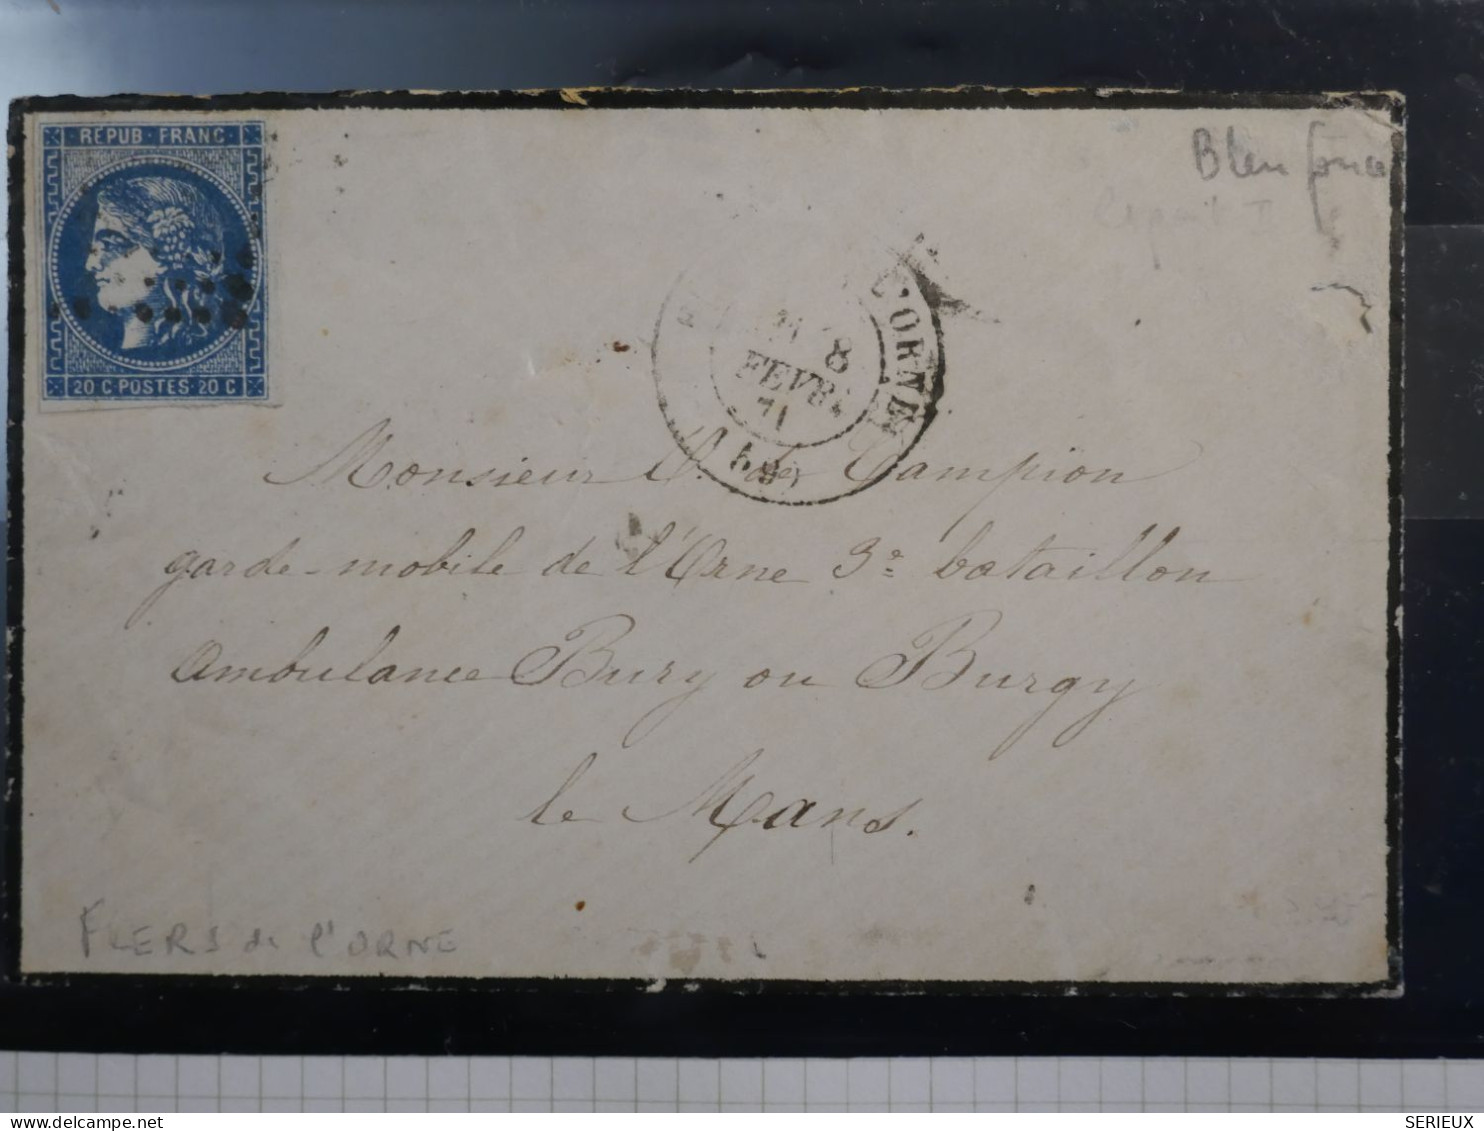 REPUB · FRANC
20 C POSTES 20 C
Bleu foncé
L'ORNE
8
FEVR.
71
Monsieur de Campion
garde-mobile de l'Orne 3e bataillon
Ambulance Bury ou Burgy
le Mans.
FLERS de l'ORNE
delcampe.net
SERIEUX